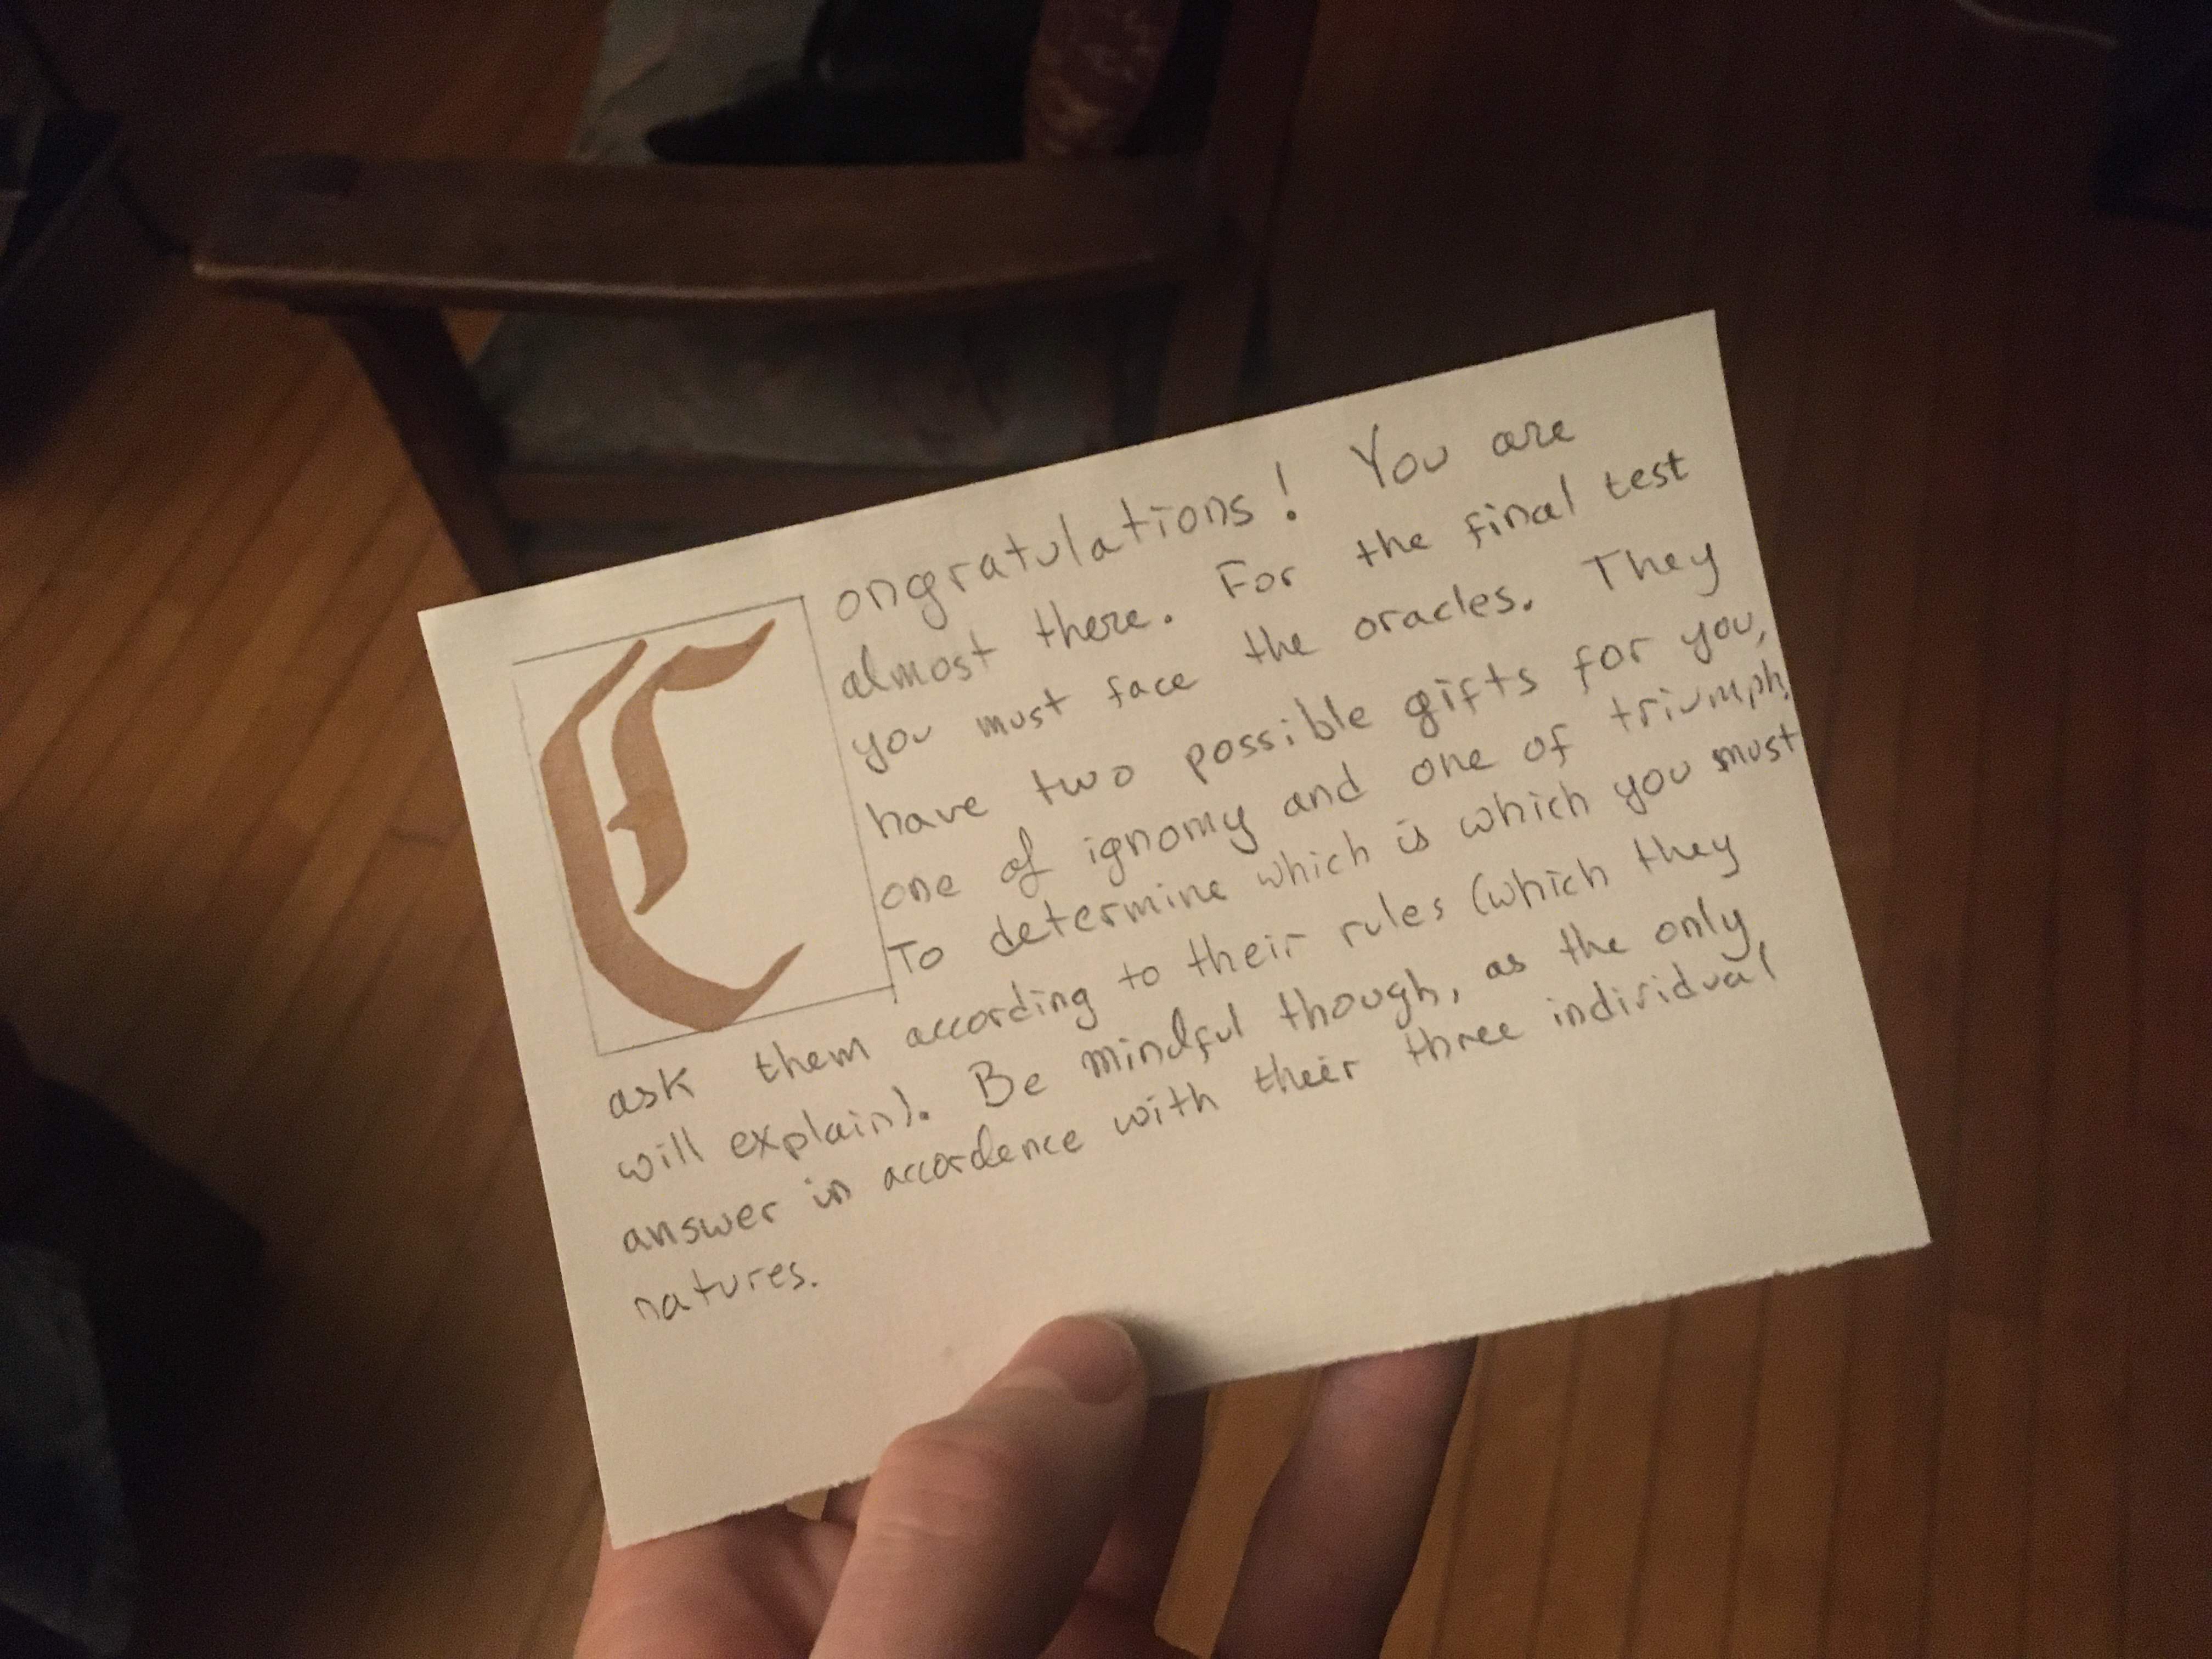 Congratulations! You are
almost there. For the final test
you must face the oracles. They
have two possible gifts for you,
one of ignomy and one of triumph.
To determine which is which you must
ask them according to their rules (which they
will explain). Be mindful though, as the only
answer in accordence with their three individual
natures.